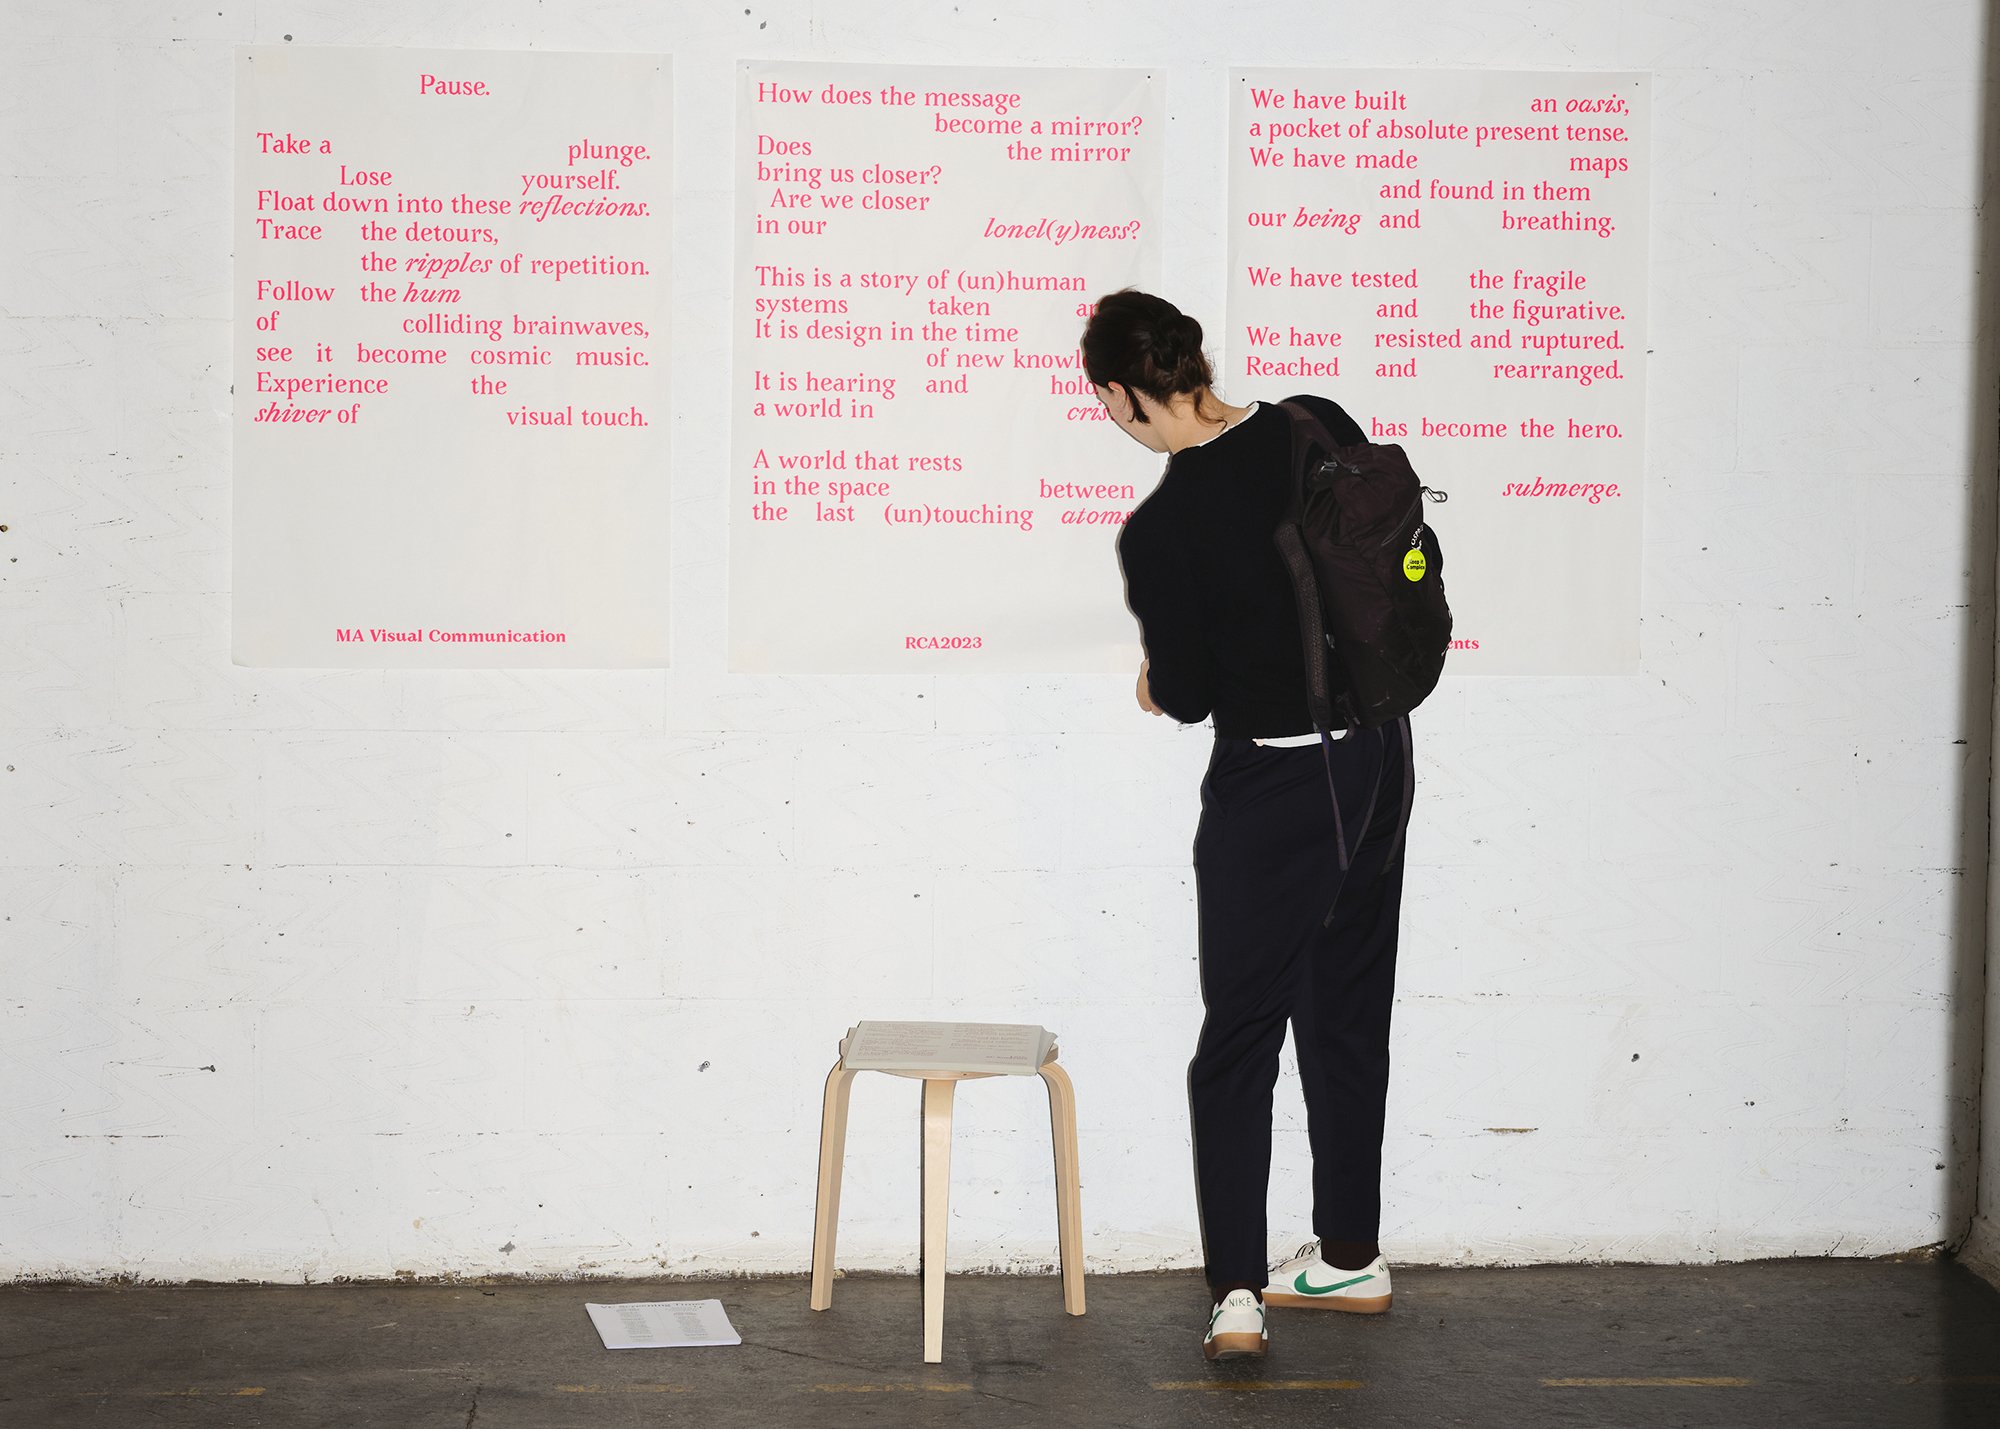 Pause.
Take a plunge.
Lose yourself.
Float down into these reflections.
Trace the detours,
the ripples of repetition.
Follow the hum
of colliding brainwaves,
see it become cosmic music.
Experience the
shiver of visual touch.
MA Visual Communication
How does the message
become a mirror?
Does the mirror
bring us closer?
Are we closer
in our lonel(y)ness?
This is a story of (un)human
systems taken
It is design in the time
of new
It is hearing and
a world in
A world that rests
in the space between
the last (un)touching atoms
RCA2023
We have built an oasis,
a pocket of absolute present tense.
We have made maps
and found in them
our being and breathing.
We have tested the fragile
and the figurative.
We have resisted and ruptured.
Reached and rearranged.
has become the hero.
submerge.
Keep it
Complex
NIKE